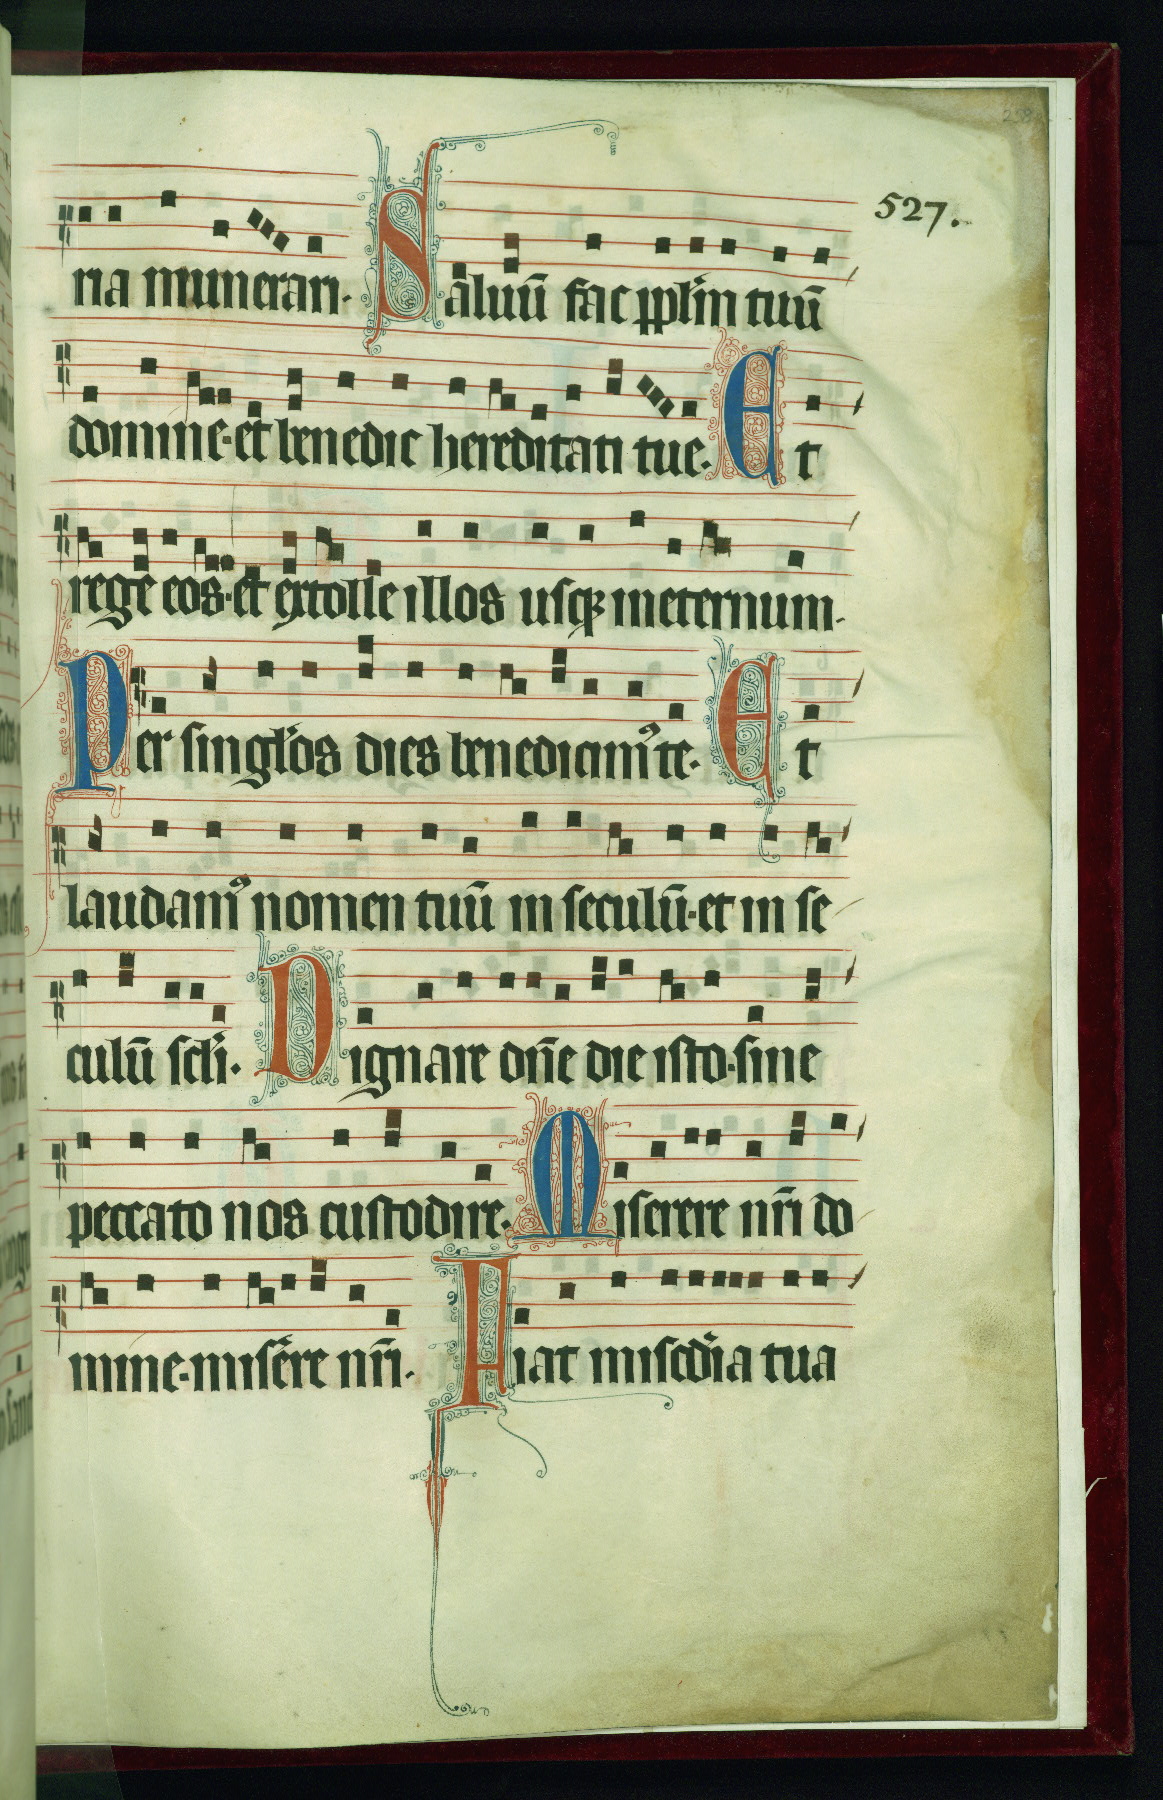 258
527.
ria munerari. Saluū fac pplm̄ tuū
domine. et benedic hereditati tue. Et
rege eos. et extolle illos usqꝫ in eternum.
Per singl'os dies benedicimꝰ te. Et
laudamꝰ nomen tuū in seculū. et in se
culū scl'i. Dignare dn̄e die isto. sine
peccato nos custodire. Miserere nr̄i do
mine. misere nr̄i. Fiat miscd'ia tua